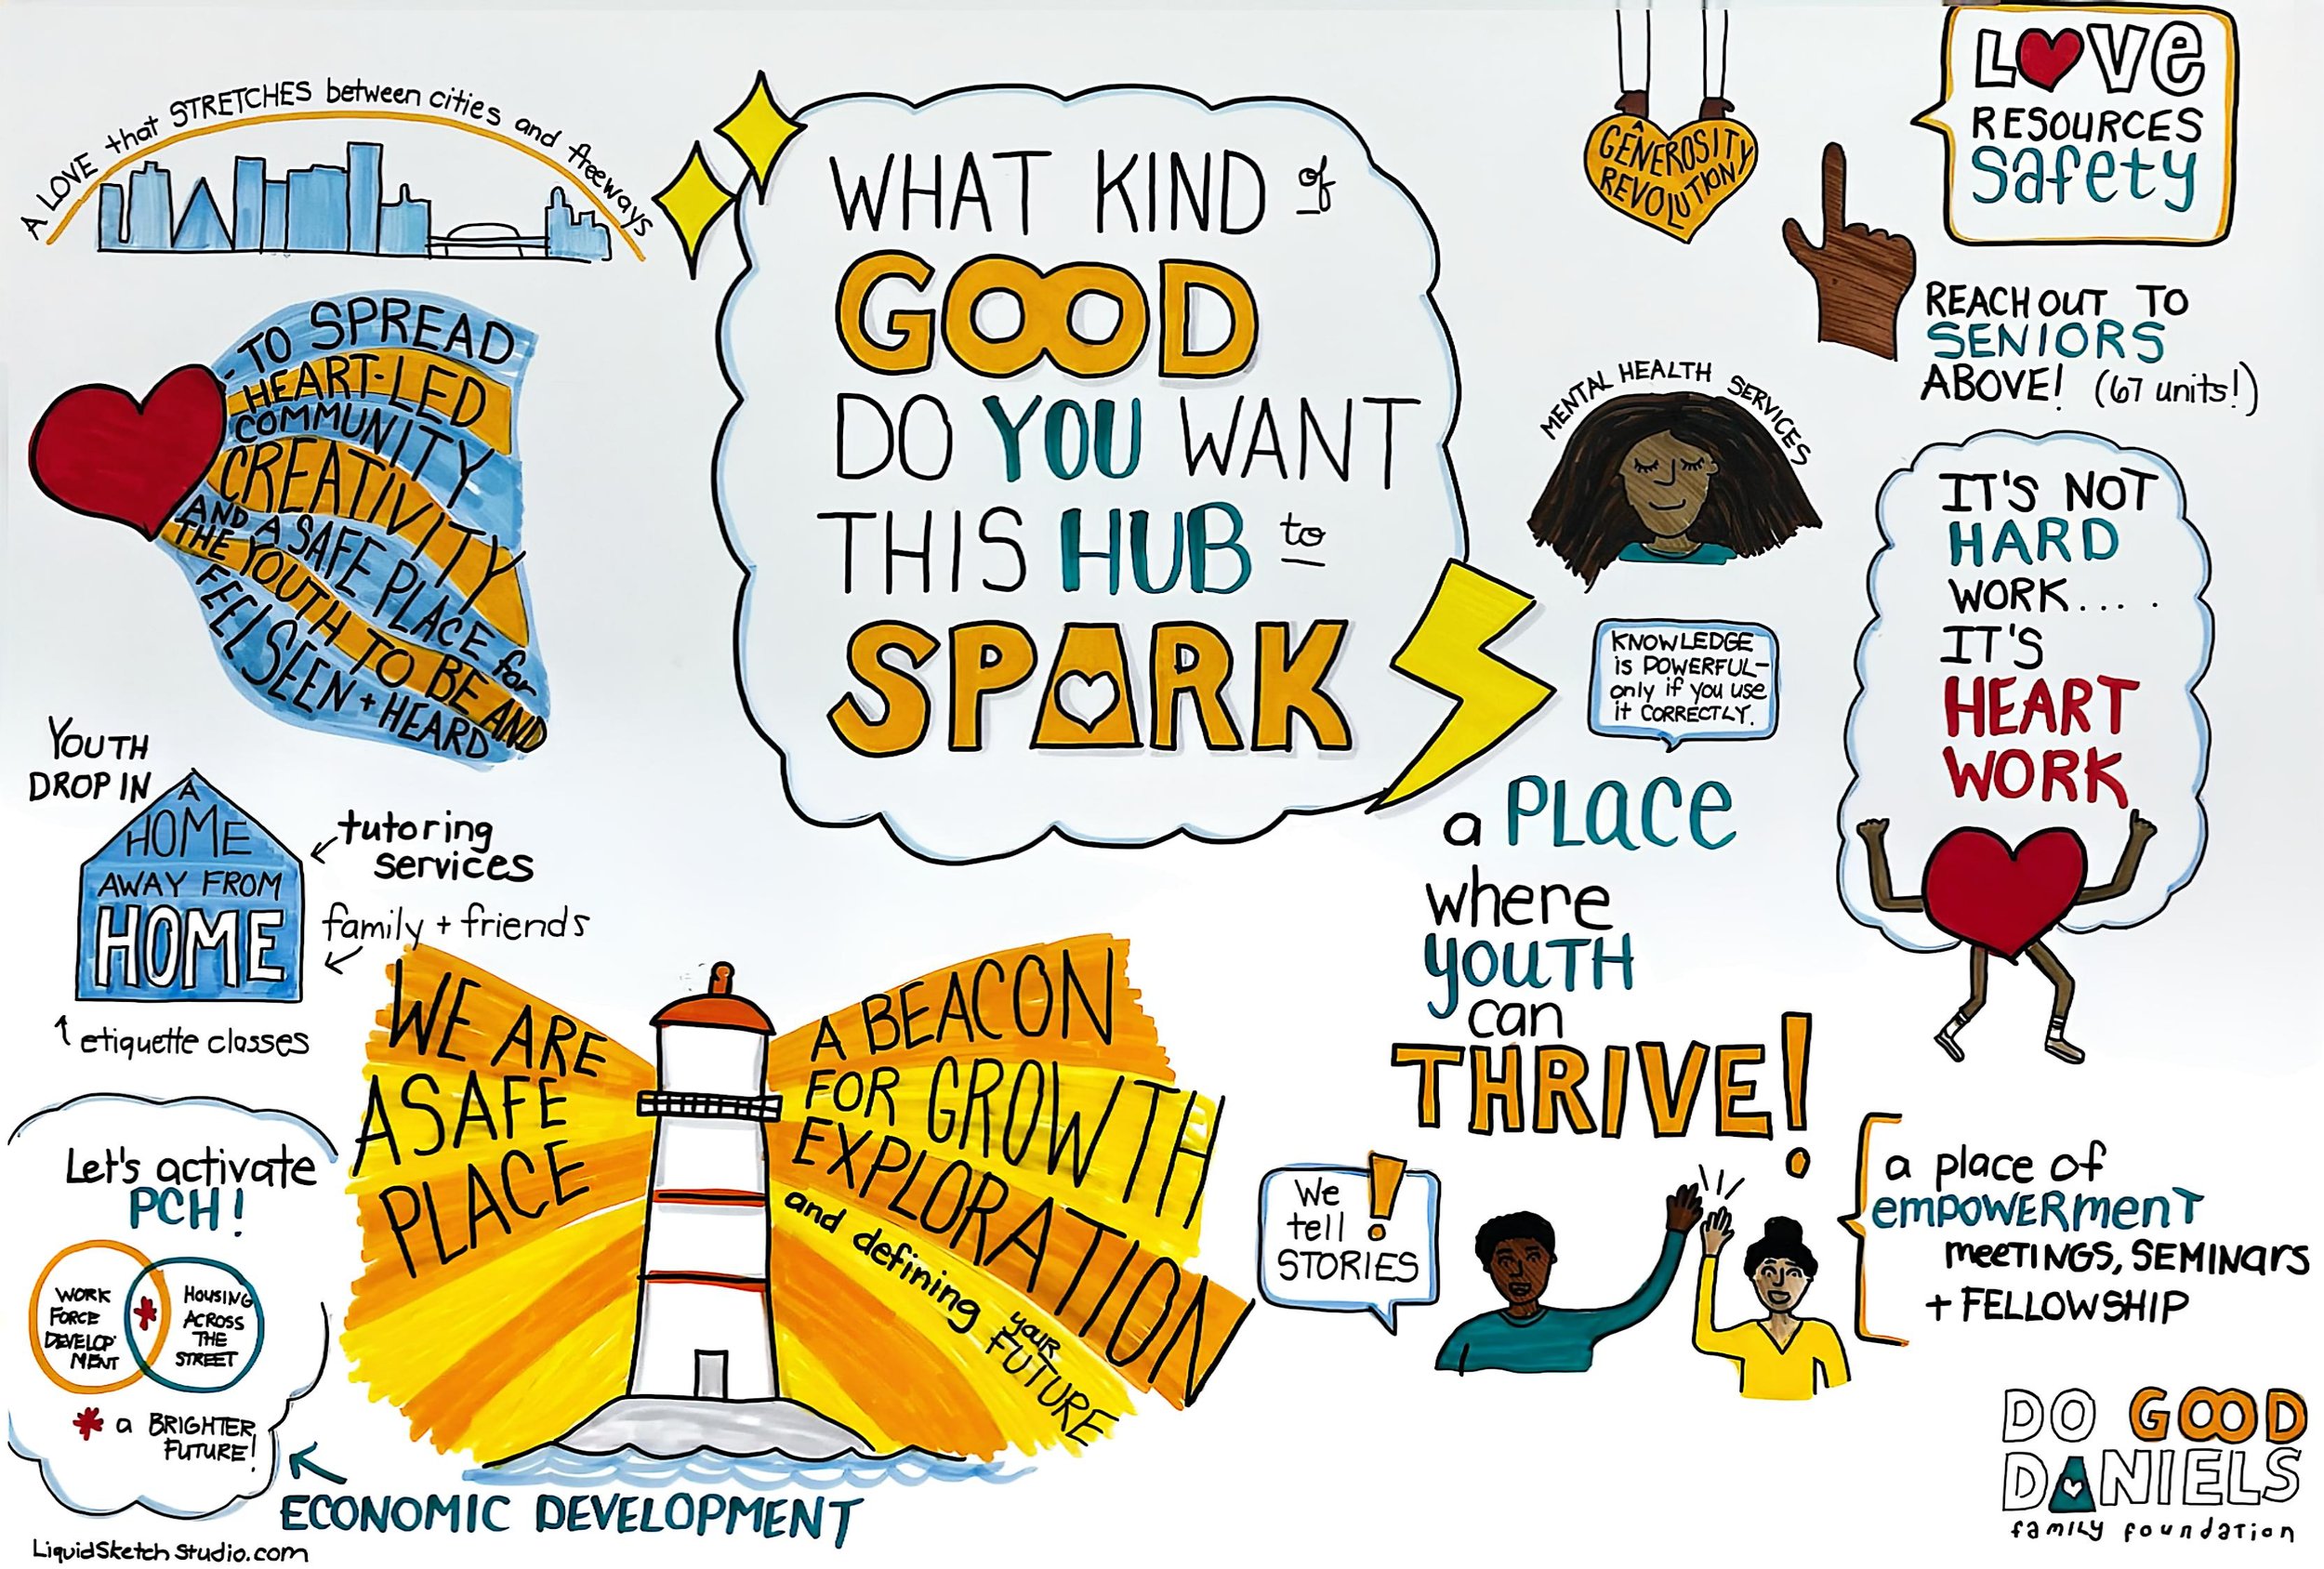 A LOVE that STRETCHES between cities and freeways
WHAT KIND of
GOOD
DO YOU WANT
THIS HUB to
SPARK
A
GENEROSITY
REVOLUTION!
LOVE
RESOURCES
Safety
REACH OUT TO
SENIORS
ABOVE! (67 units!)
- TO SPREAD
HEART-LED
COMMUNITY
CREATIVITY
AND A SAFE PLACE for
THE YOUTH TO BE AND
FEEL SEEN + HEARD
MENTAL HEALTH SERVICES
KNOWLEDGE
is POWERFUL-
only if you use
it CORRECTLY.
IT'S NOT
HARD
WORK.....
IT'S
HEART
WORK
YOUTH
DROP IN
A
HOME
AWAY FROM
HOME
tutoring
services
family + friends
etiquette classes
a PLACE
where
YOUTH
can
THRIVE!
WE ARE
A SAFE
PLACE
A BEACON
FOR GROWTH
EXPLORATION
and defining your
FUTURE
Let's activate
PCH!
WORK
FORCE
DEVELOP
MENT
*
HOUSING
ACROSS
THE
STREET
* a BRIGHTER
FUTURE!
ECONOMIC DEVELOPMENT
We
tell
STORIES
!
a place of
EMPOWERMENT
MEETINGS, SEMINARS
+ FELLOWSHIP
DO GOOD
DANIELS
family foundation
LiquidSketchStudio.com